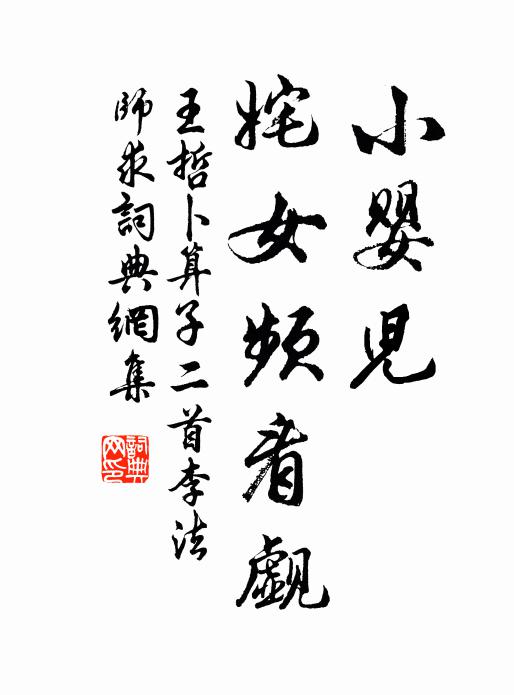 小嬰児
姹女頻看覷
王哲卜算子二首李法
師求詞典網集
詞典
网印